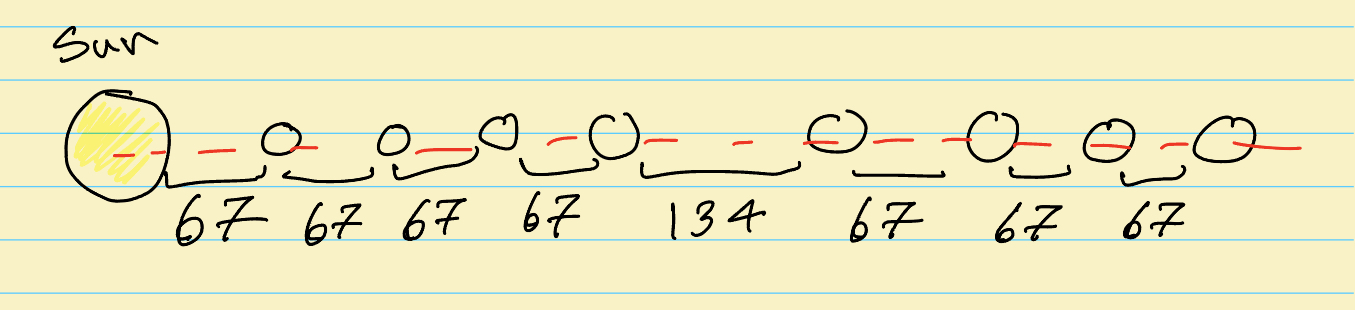 Sun
67 67 67 67 134 67 67 67